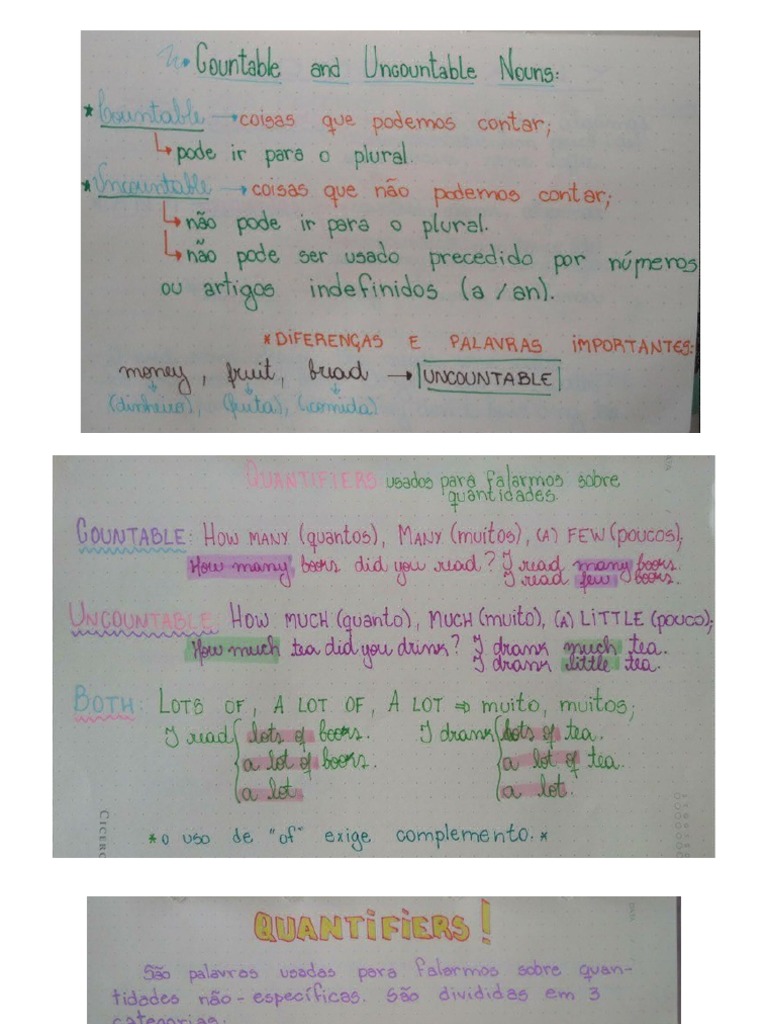 Countable and Uncountable Nouns:
* Countable → coisas que podemos contar;
↳ pode ir para o plural.
* Uncountable → coisas que não podemos contar;
↳ não pode ir para o plural.
↳ não pode ser usado precedido por números
ou artigos indefinidos (a / an).
* DIFERENÇAS E PALAVRAS IMPORTANTES:
money, fruit, bread → UNCOUNTABLE
(dinheiro), (fruta), (comida)
QUANTIFIERS usados para falarmos sobre
quantidades.
COUNTABLE: HOW MANY (quantos), MANY (muitos), (A) FEW (poucos);
How many books did you read? I read many books.
I read few books.
UNCOUNTABLE: HOW MUCH (quanto), MUCH (muito), (A) LITTLE (pouco);
How much tea did you drink? I drank much tea.
I drank little tea.
BOTH: LOTS OF, A LOT OF, A LOT ⇒ muito, muitos;
I read { lots of books. I drank { lots of tea.
a lot of books. a lot of tea.
a lot. a lot.
* o uso de "of" exige complemento. *
CICERO
QUANTIFIERS!
São palavras usadas para falarmos sobre quan-
tidades não-específicas. São divididas em 3
categorias: